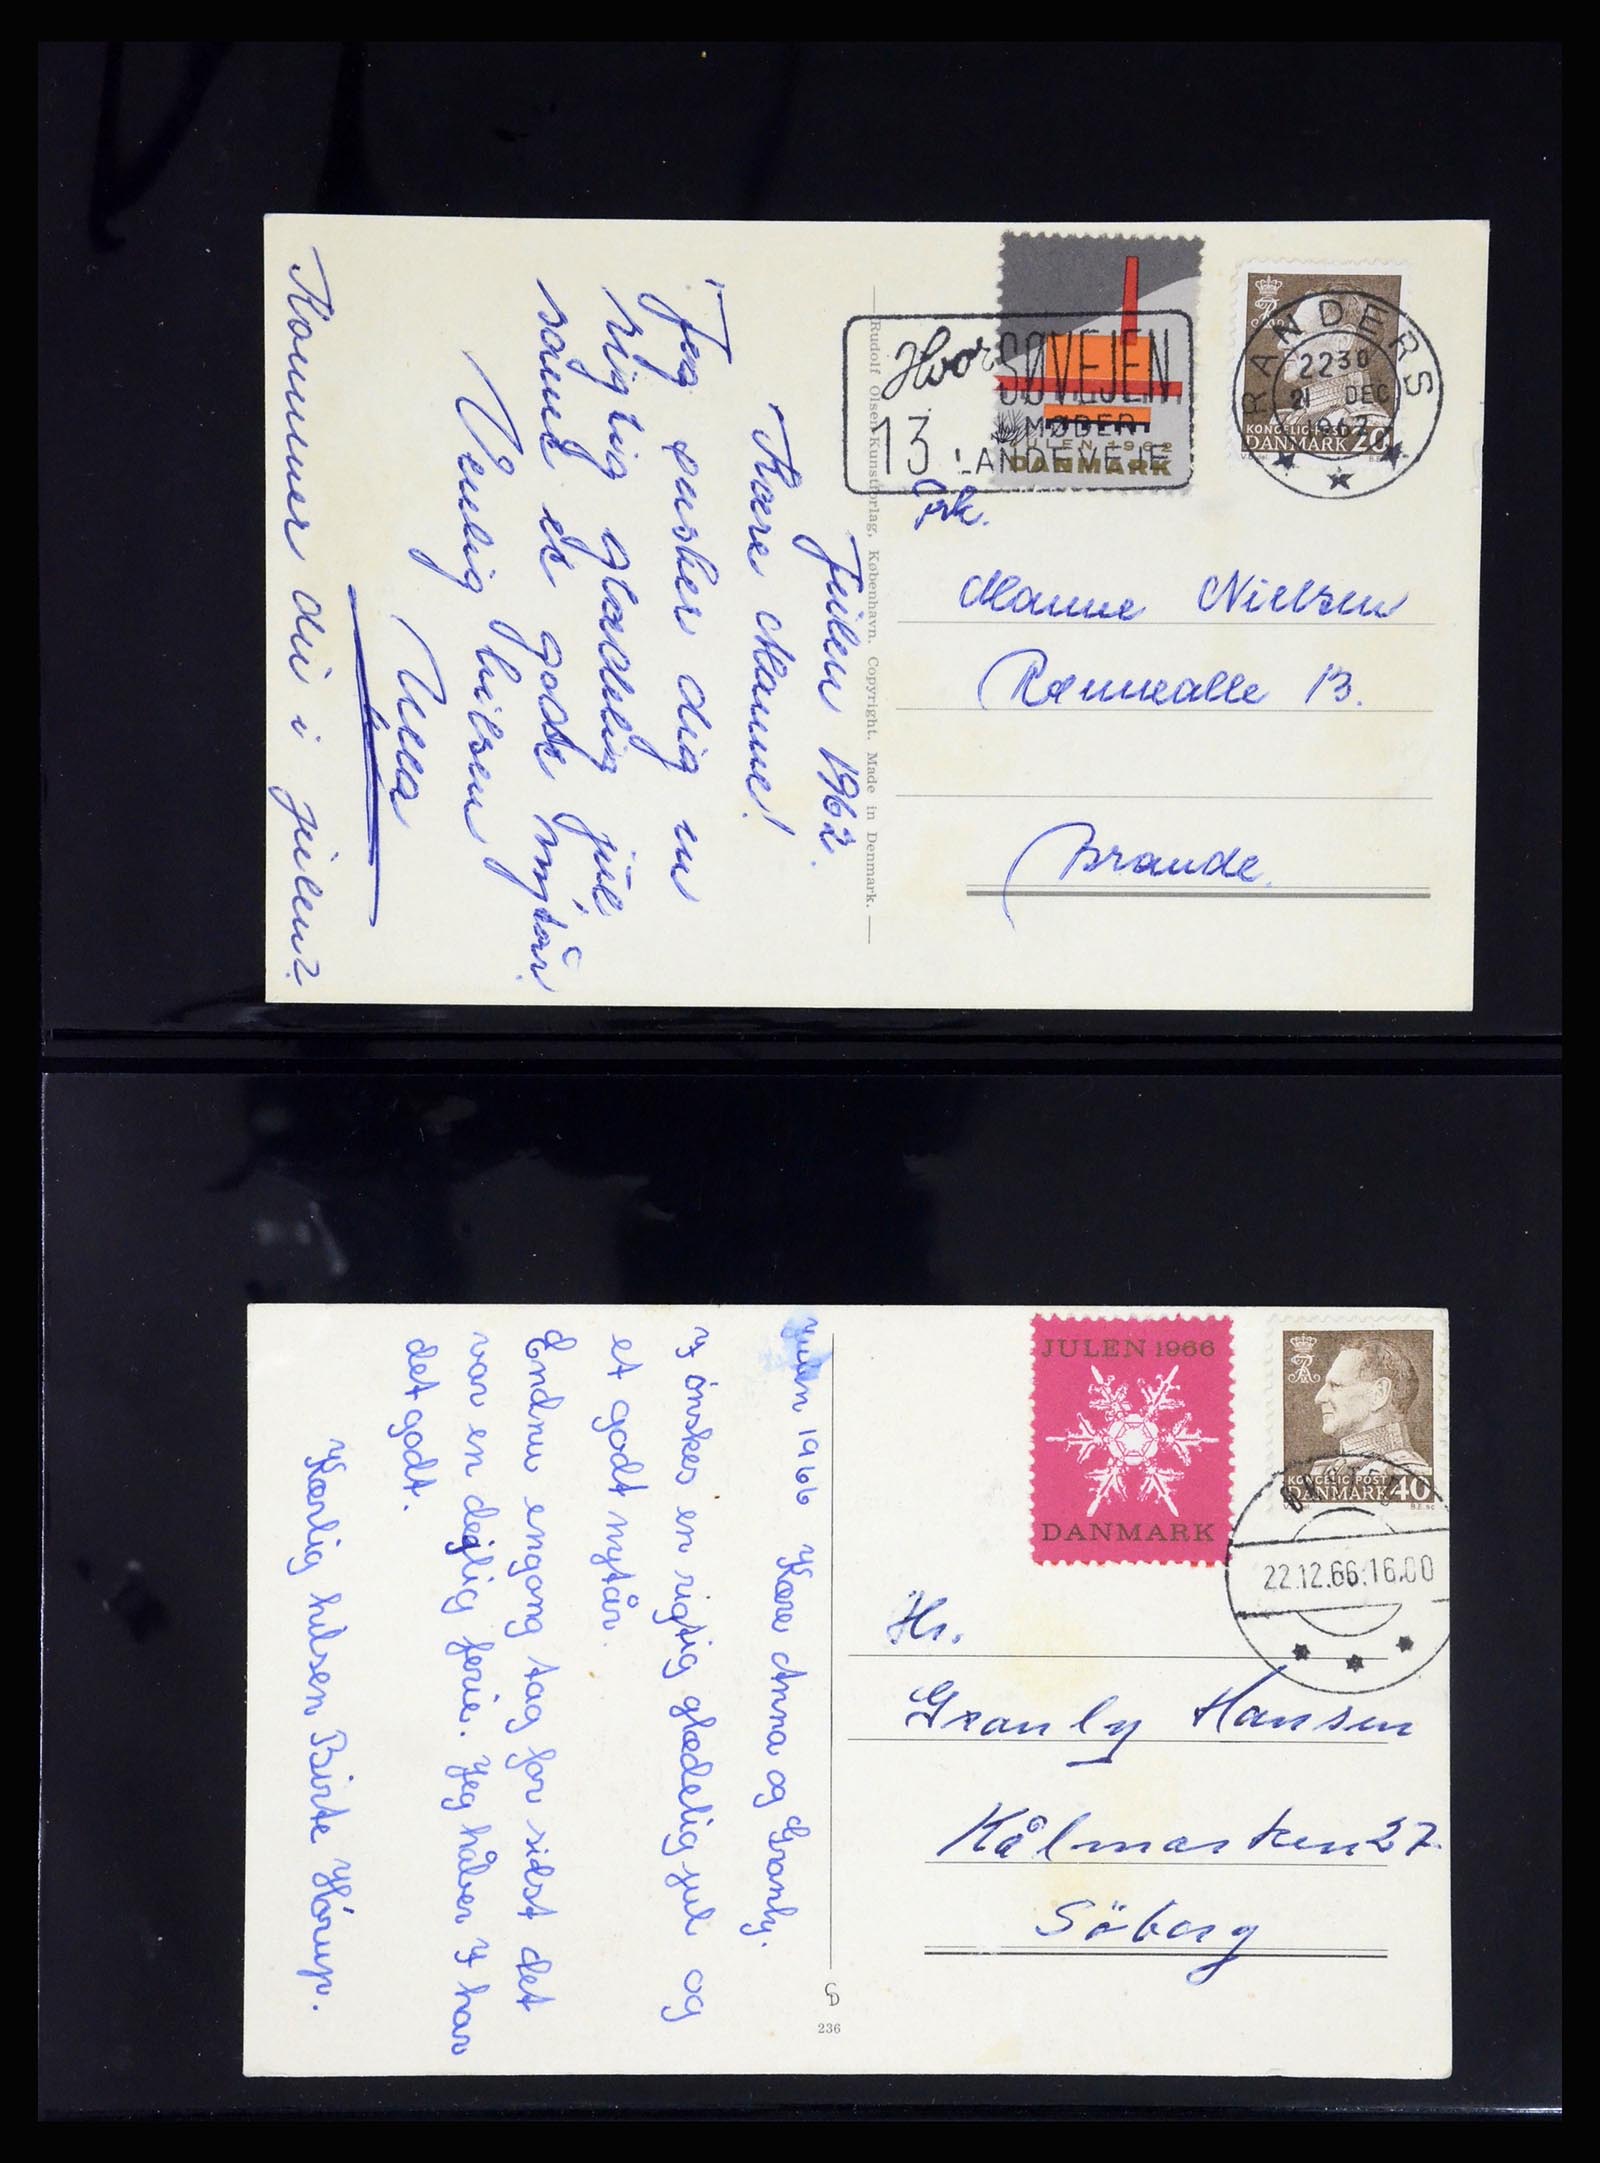 KONGELIG POST
DANMARK 20
RANDERS
2230
21 DEC
1962
Hvor SØVEJEN
MØDER
13 LANDEVEJE
JULEN 1962
DANMARK
Frk.
Hanne Nielsen
Rønnealle 13.
Brande.
Rudolf Olsen Kunstforlag, København. Copyright. Made in Denmark.
Julen 1962.
Kære Hanne!
Jeg ønsker dig en
rigtig glædelig jul
samt et godt nytår.
Venlig hilsen
Ulla
Kommer du i julen?
JULEN 1966
DANMARK
KONGELIG POST
DANMARK 40
22.12.66.16.00
Hr.
Granly Hansen
Kålmarken 27.
Söborg
Julen 1966 Kære Anna og Granly.
I ønskes en rigtig glædelig jul og
et godt nytår.
Endnu engang tag for sidst det
var en dejlig ferie. Jeg håber I har
det godt.
Kærlig hilsen Birte Hórup.
236